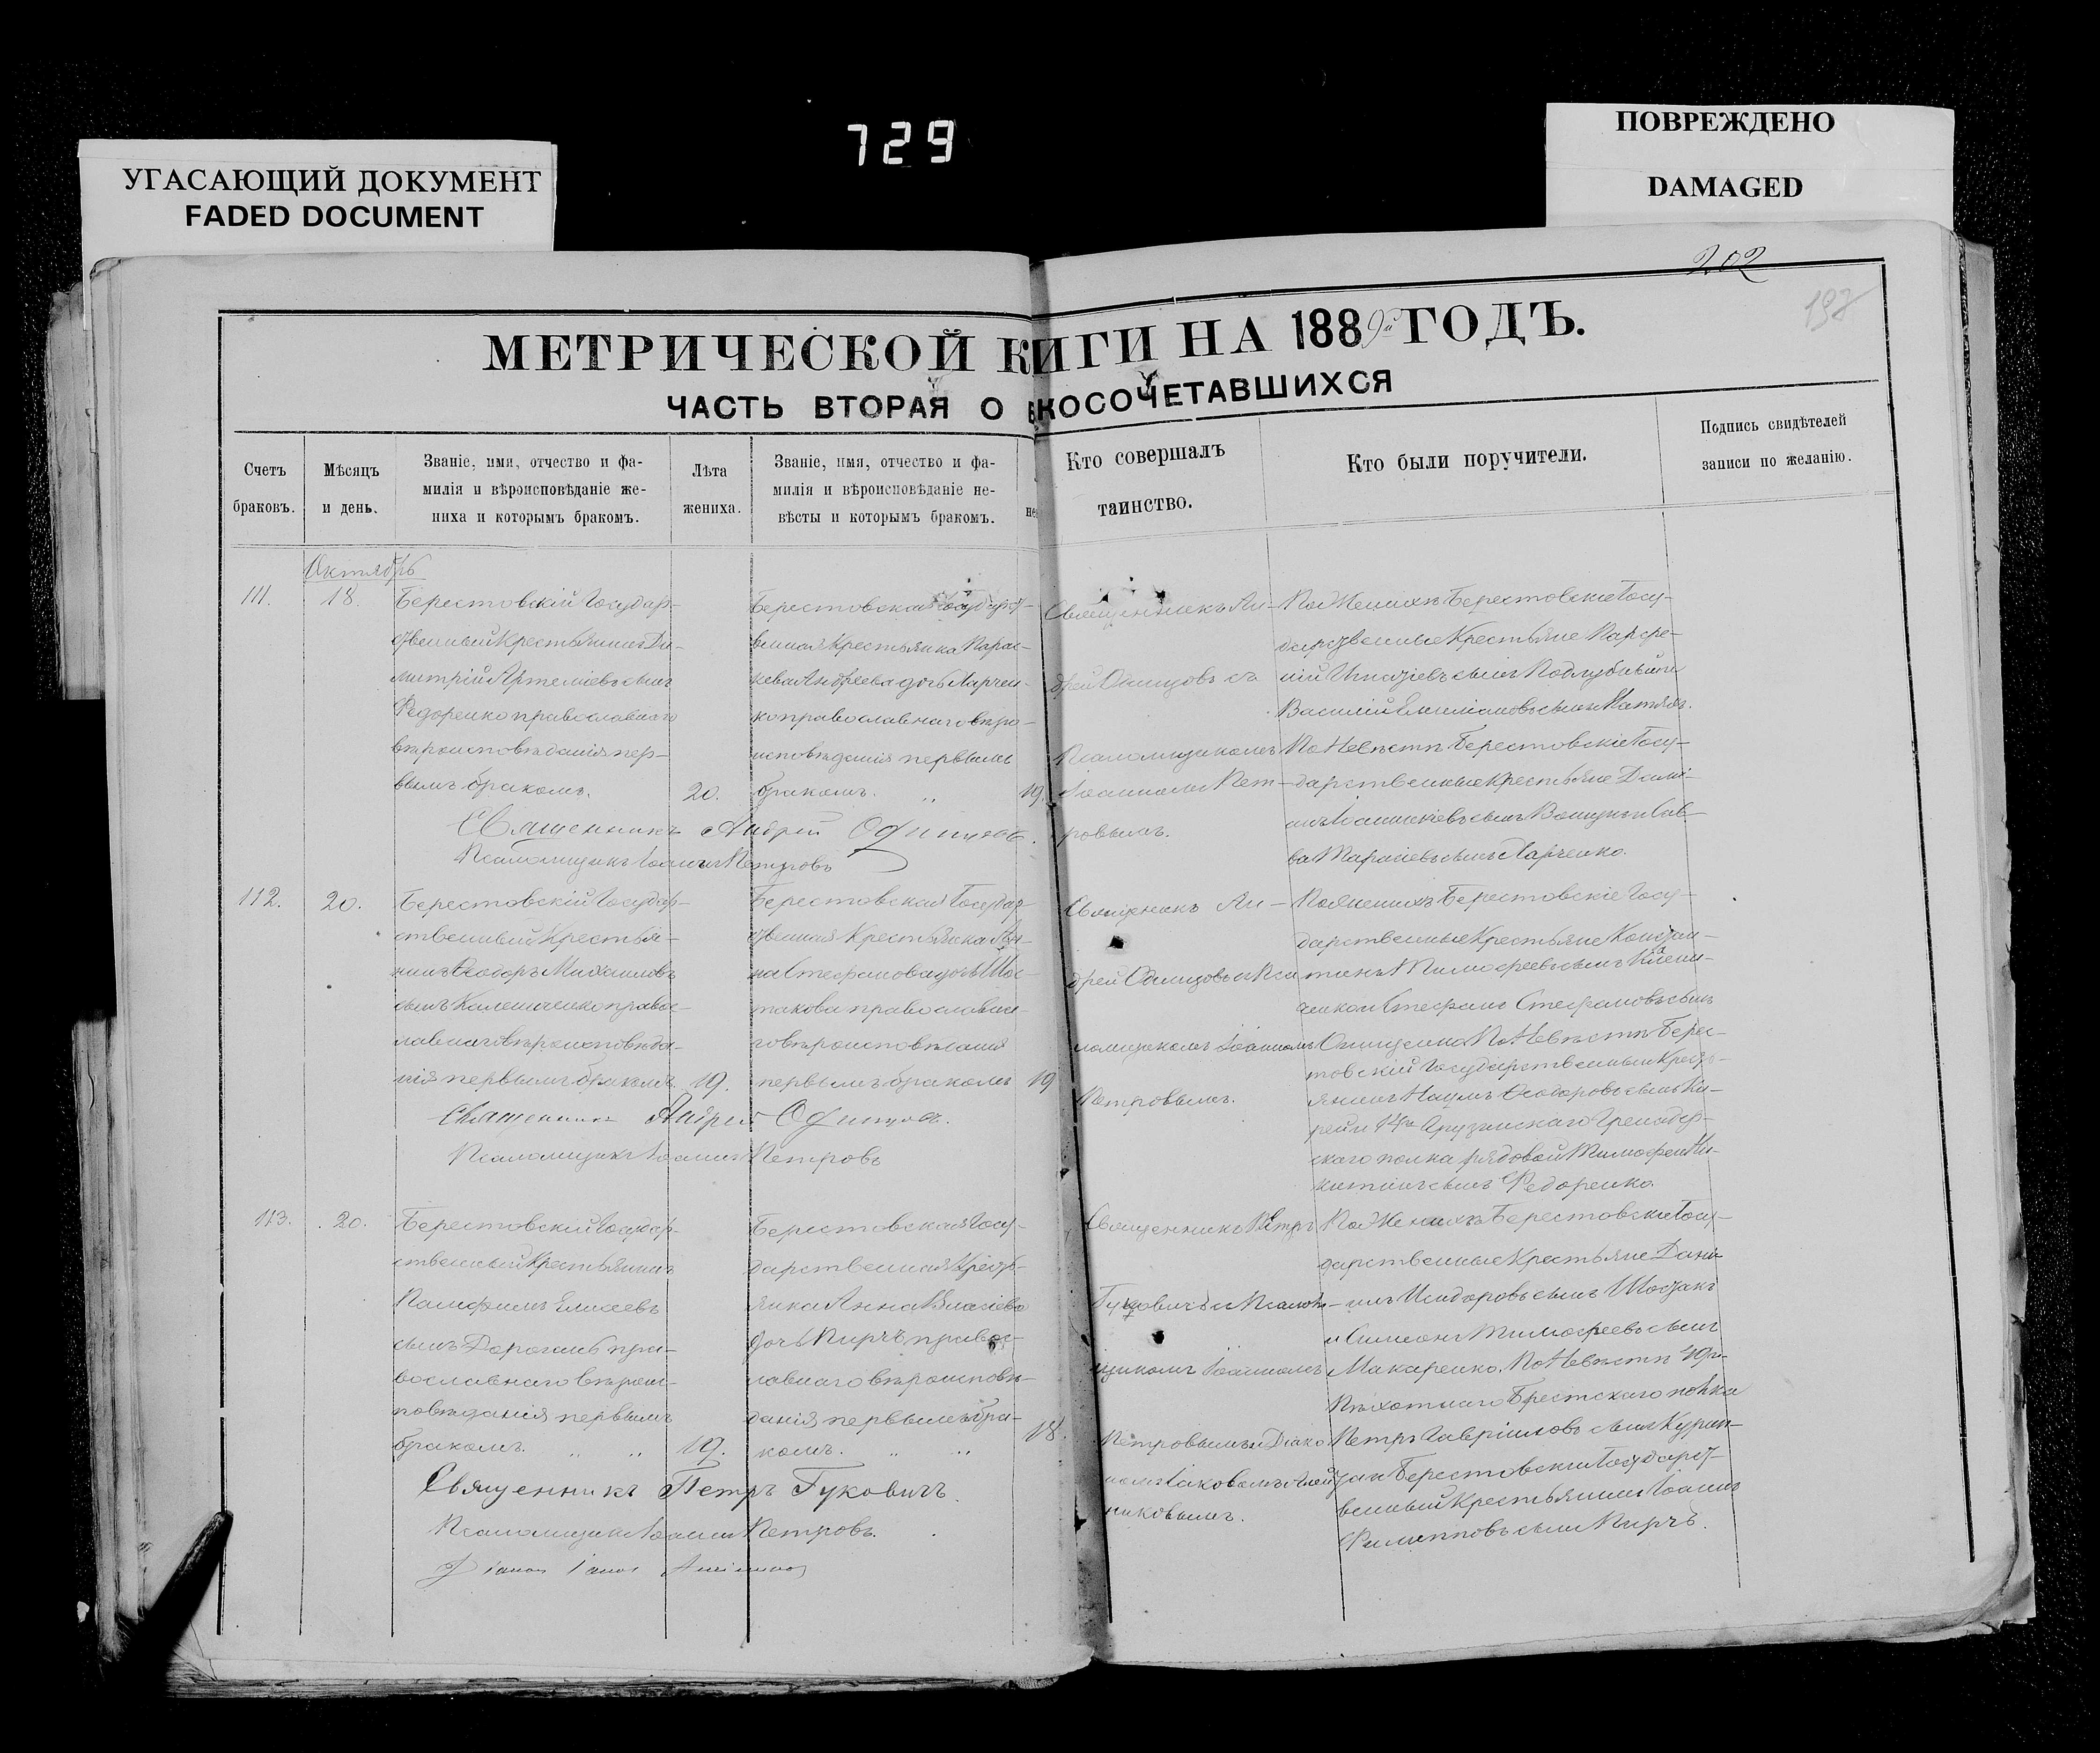 729
УГАСАЮЩИЙ ДОКУМЕНТ
FADED DOCUMENT
ПОВРЕЖДЕНО
DAMAGED
202
197
МЕТРИЧЕСКОЙ КИГИ НА 1889й ГОДЪ.
ЧАСТЬ ВТОРАЯ О БКОСОЧЕТАВШИХСЯ
Счетъ
браковъ.
Мѣсяцъ
и день.
Званіе, имя, отчество и фа-
милія и вѣроисповѣданіе же-
ниха и которымъ бракомъ.
Лѣта
жениха.
Званіе, имя, отчество и фа-
милія и вѣроисповѣданіе не-
вѣсты и которымъ бракомъ.
не
Кто совершалъ
таинство.
Кто были поручители.
Подпись свидѣтелей
записи по желанію.
Октябрь
111.
18.
Берестовскій Государ-
ственный Крестьянинъ Ди-
митрій Артеміевъ сынъ
Федоренко православнаго
вѣроисповѣданія пер-
вымъ бракомъ.
20.
Берестовская Государст-
венная Крестьянка Парас-
кева Андреева дочь Ларчен-
ко православнаго вѣро-
исповѣданія первымъ
бракомъ. "
19.
Священникъ Ан-
дрей Одинцовъ съ
Псаломщикомъ
Іоанномъ Пет-
ровымъ.
По Женихѣ Берестовскіе Госу-
дарственные Крестьяне Парфе-
ній Игнатіевъ сынъ Поддубный и
Василій Емиліановъ сынъ
По Невѣстѣ Берестовскіе Госу-
дарственные Крестьяне Дамі-
анъ сынъ и Сав-
ва Тарасіевъ сынъ Ларченко.
Священникъ Андрей Одинцовъ.
Псаломщикъ Іоаннъ Петровъ
112.
20.
Берестовскій Государ-
ственный Крестья-
нинъ Ѳеодоръ Михаиловъ
сынъ Калениченко правос-
лавнаго вѣроисповѣда-
нія первымъ бракомъ
19.
Берестовская Государ-
ственная Крестьянка Ан-
на Стефанова дочь Шос-
такова православна-
го вѣроисповѣданія
первымъ бракомъ
19
Священникъ Ан-
дрей Одинцовъ съ Пса
ломщикомъ Іоанномъ
Петровымъ.
По Женихѣ Берестовскіе Госу-
дарственные Крестьяне Констан-
тинъ Тимофеевъ сынъ
и Стефанъ Стефановъ сынъ
Онищенко По Невѣстѣ Берес-
товскій Государственный Крест-
янинъ Наумъ Ѳеодоровъ сынъ Ки-
рей и 14го Грузинскаго Гренадер-
скаго полка рядовой Тимофей Ни-
китинъ сынъ Федоренко.
Священникъ Андрей Одинцовъ.
Псаломщикъ Іоаннъ Петровъ
113.
20.
Берестовскій Государ-
ственный Крестьянинъ
Памфилъ Елисеевъ
сынъ Дорогань пра-
вославнаго вѣроис-
повѣданія первымъ
бракомъ. " "
19.
Берестовская Госу-
дарственная Крестъ-
янка Анна Власіева
дочь Пирчъ правос-
лавнаго вѣроисповѣ-
данія первымъ бра-
комъ. " "
18.
Священникъ Петръ
Гуковичъ съ Псалом-
щикомъ Іоанномъ
Петровымъ и Діако
номъ Іаковомъ
никовымъ.
По Женихѣ Берестовскіе Госу-
дарственные Крестьяне Дани-
илъ Исидоровъ сынъ Шостакъ
и Симеонъ Тимофеевъ сынъ
Макаренко. По Невѣстѣ 49го
Пѣхотнаго Брестскаго полка
Петръ Гавріиловъ сынъ
Берестовскій Государст-
венный Крестьянинъ Іоаннъ
Филипповъ сынъ Пирчъ.
Священникъ Петръ Гуковичъ.
Псаломщикъ Іоаннъ Петровъ.